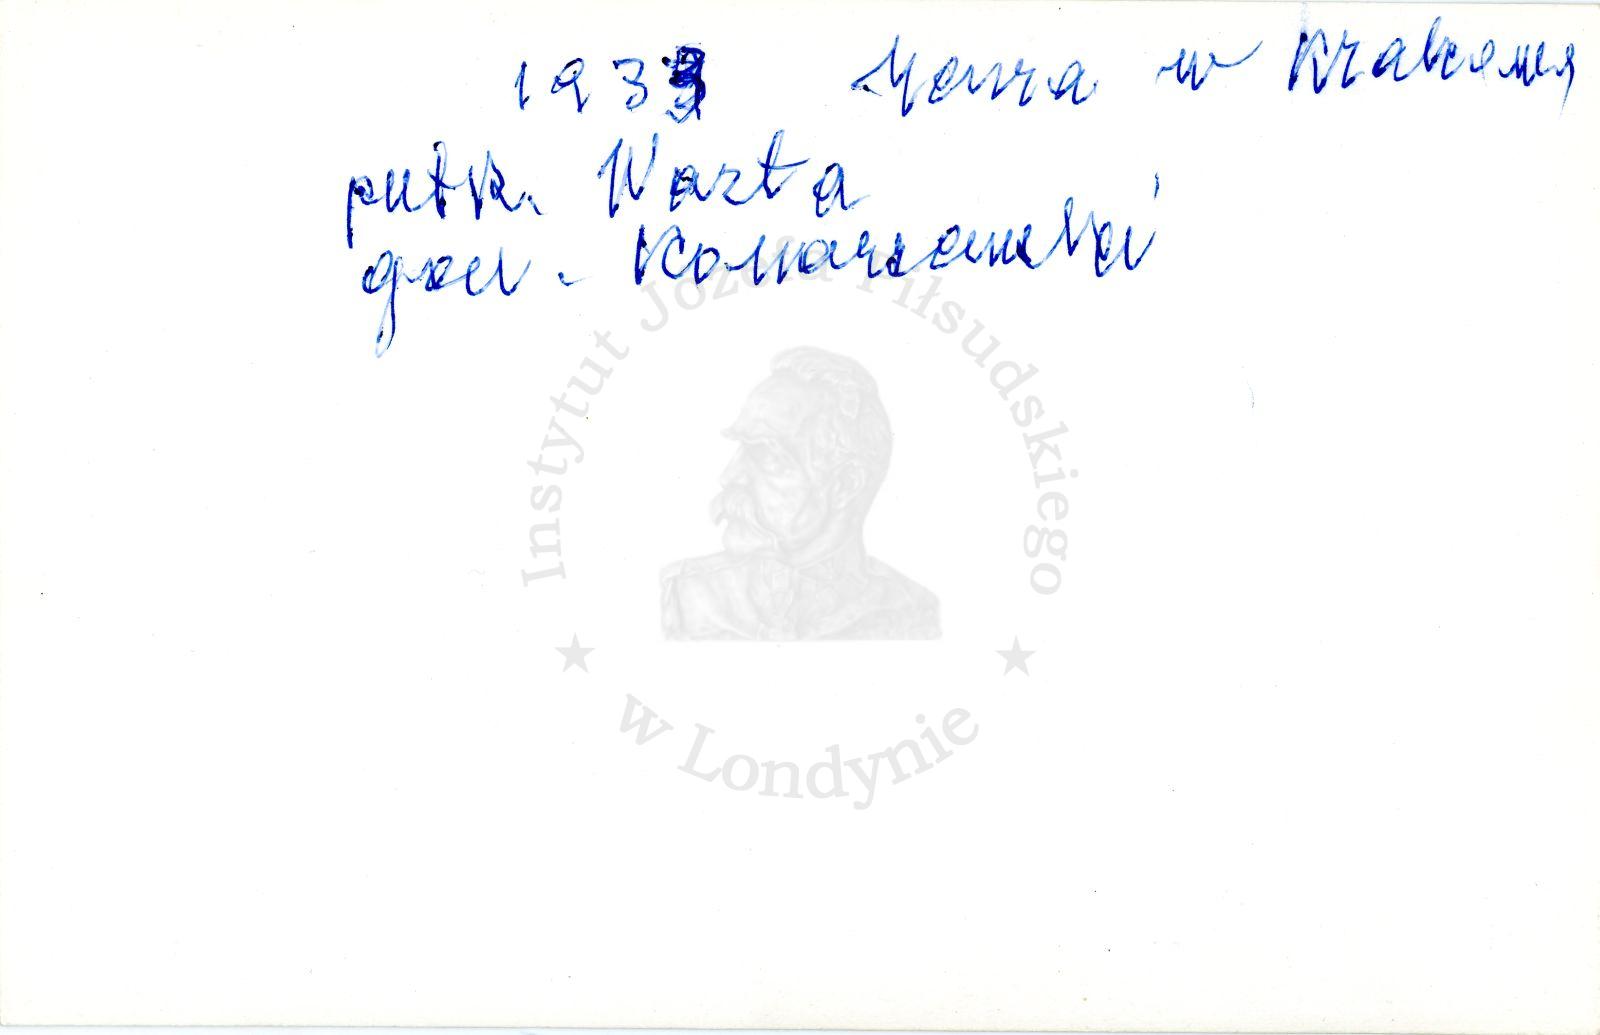 1933 w Krakowie
pułk. Warta
gen. Komarzewski
Instytut Józefa Piłsudskiego
w Londynie